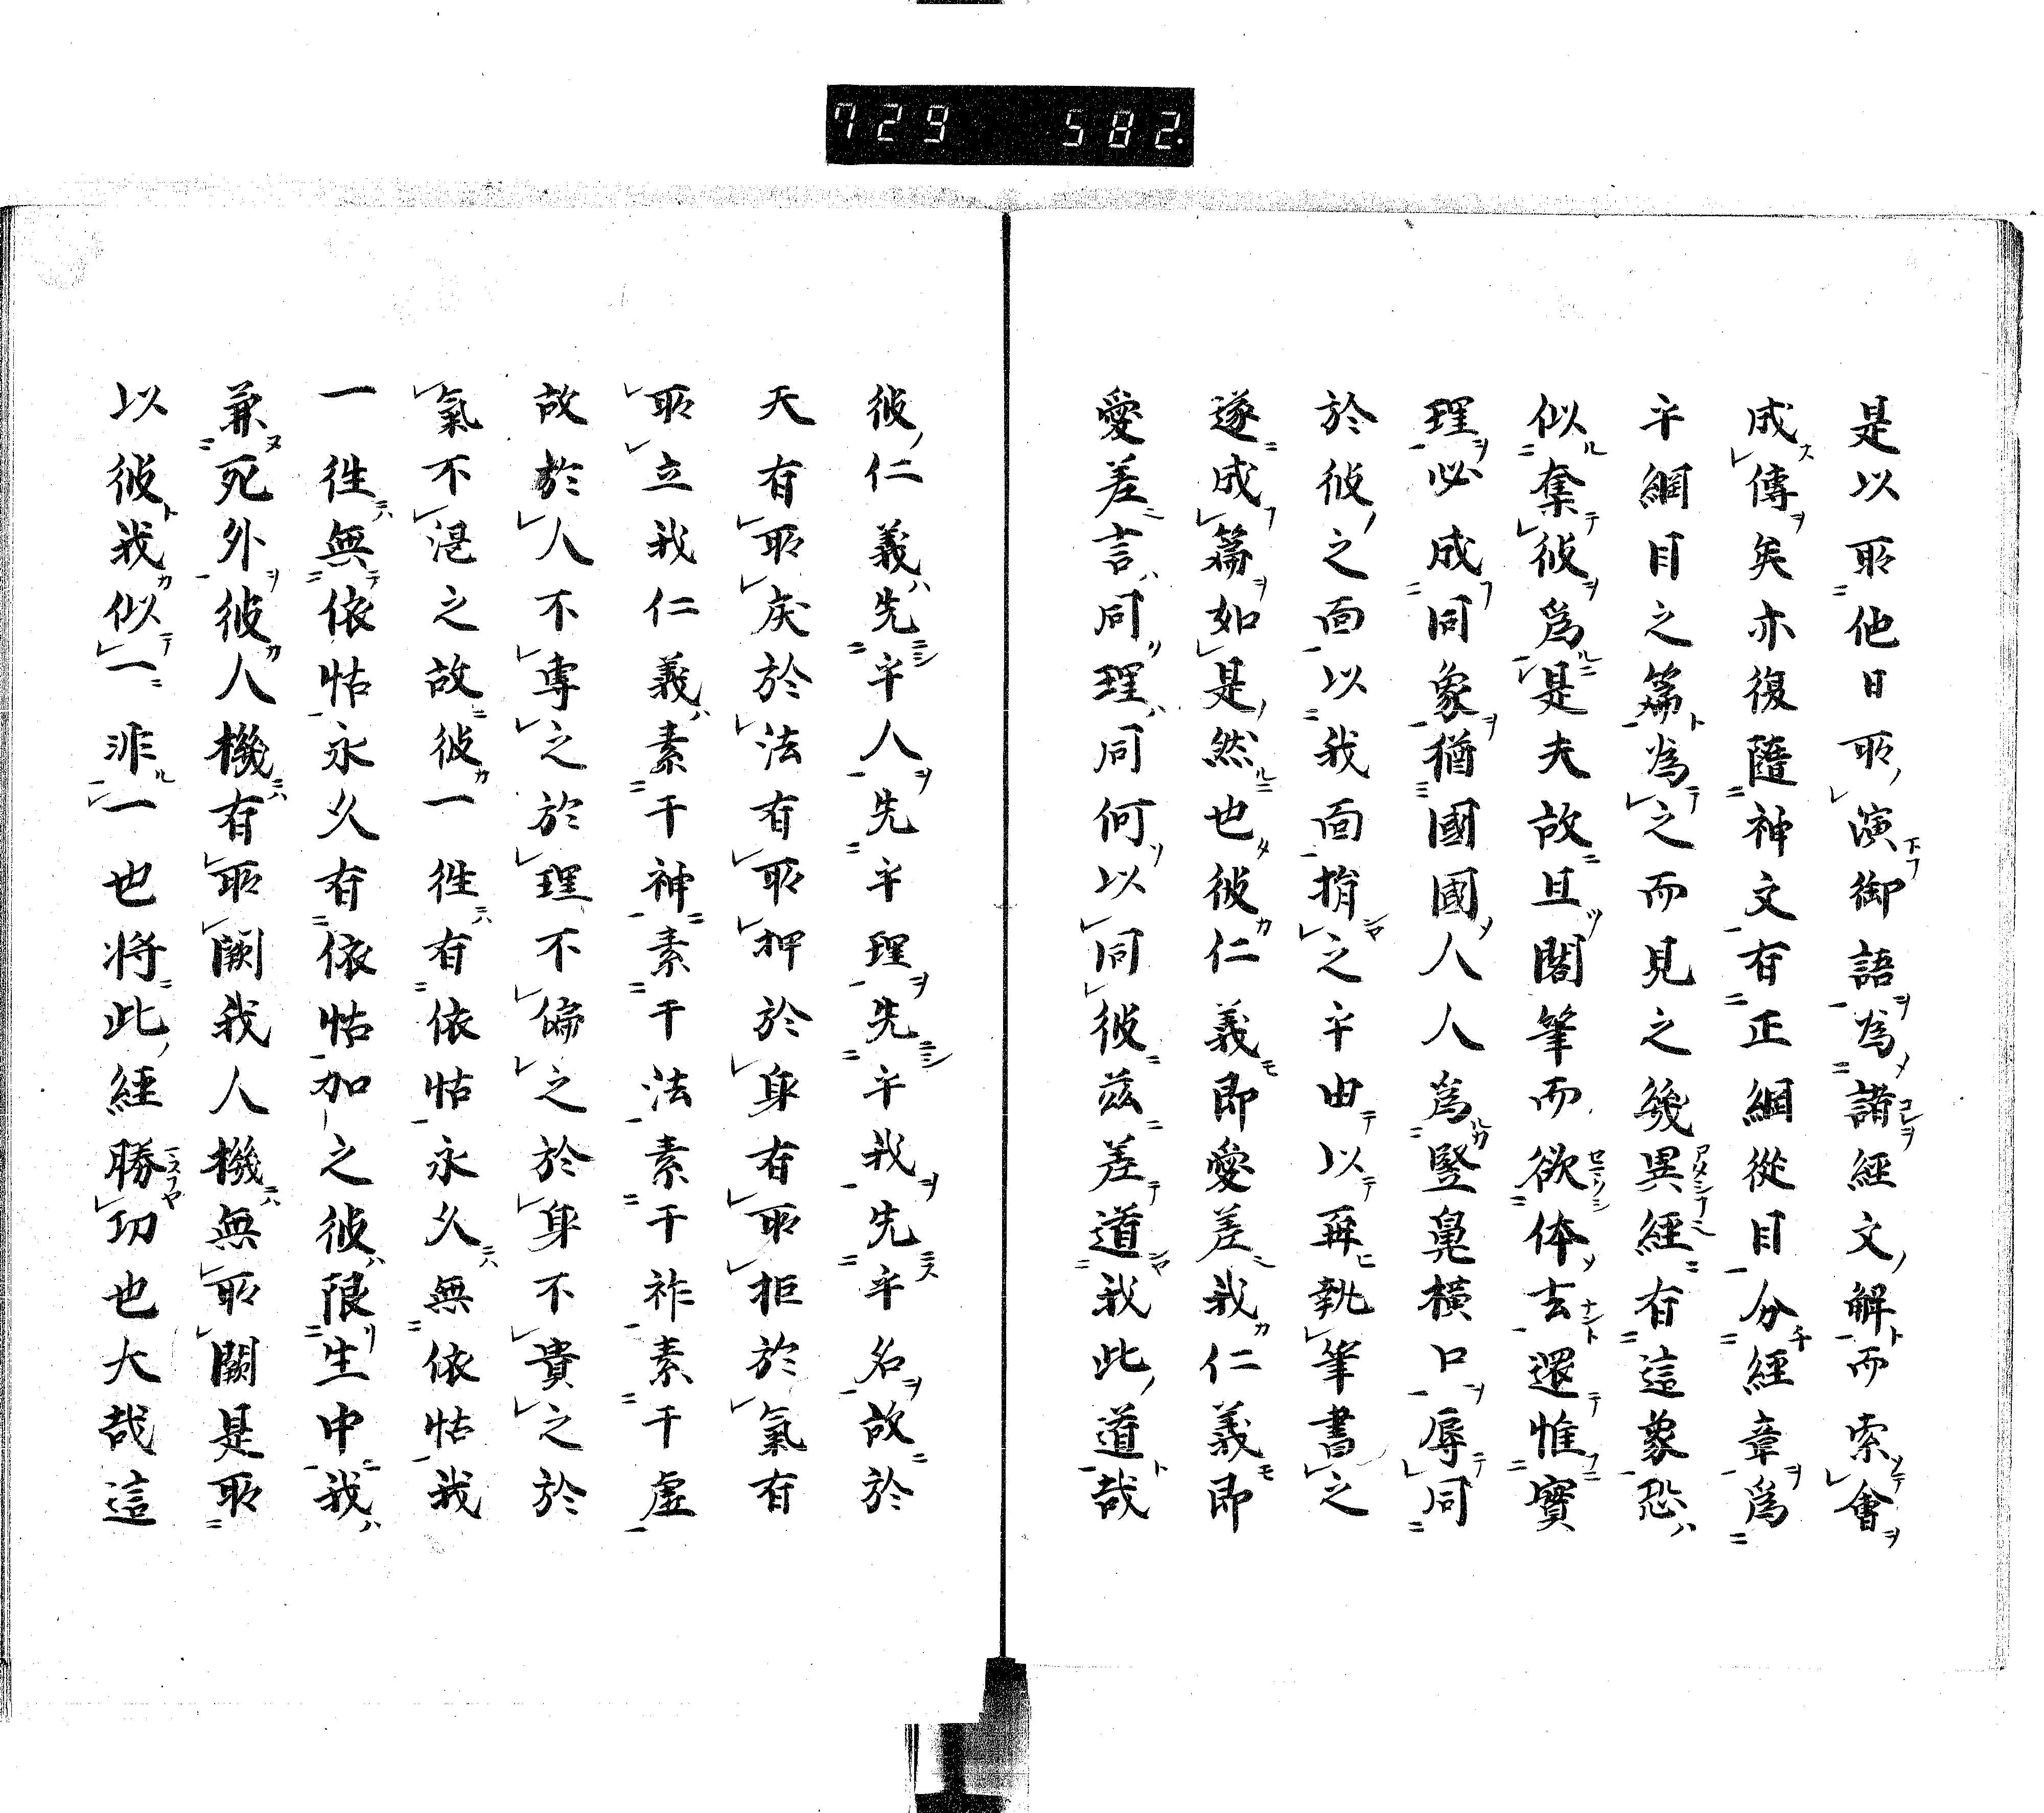 729 582.
是以取他日取演御語爲諸經文解而索會
成傳矣亦復隨神文有正綱從目分經章爲
乎綱目之篇爲之而見之幾異經有這象恐
似奪彼爲是夫故且閣筆而欲休去還惟實
理必成同象猶國國人人爲豎臭橫口辱同
於彼之面以我面揹之乎由以再執筆書之
遂成篇如是然也彼仁義即愛差我仁義即
愛差言同理同何以同彼茲差道我此道哉
彼仁義先乎人先乎理先乎我先乎名故於
天有取戾於法有取押於身有取拒於氣有
取立我仁義素干神素干法素干祚素干虛
故於人不專之於理不偏之於身不貴之於
氣不混之故彼一往有依怙永久無依怙我
一往無依怙永久有依怙加之彼限生中我
兼死外彼人機有取闕我人機無取闕是取
以彼我似一非一也將此經勝功也大哉這